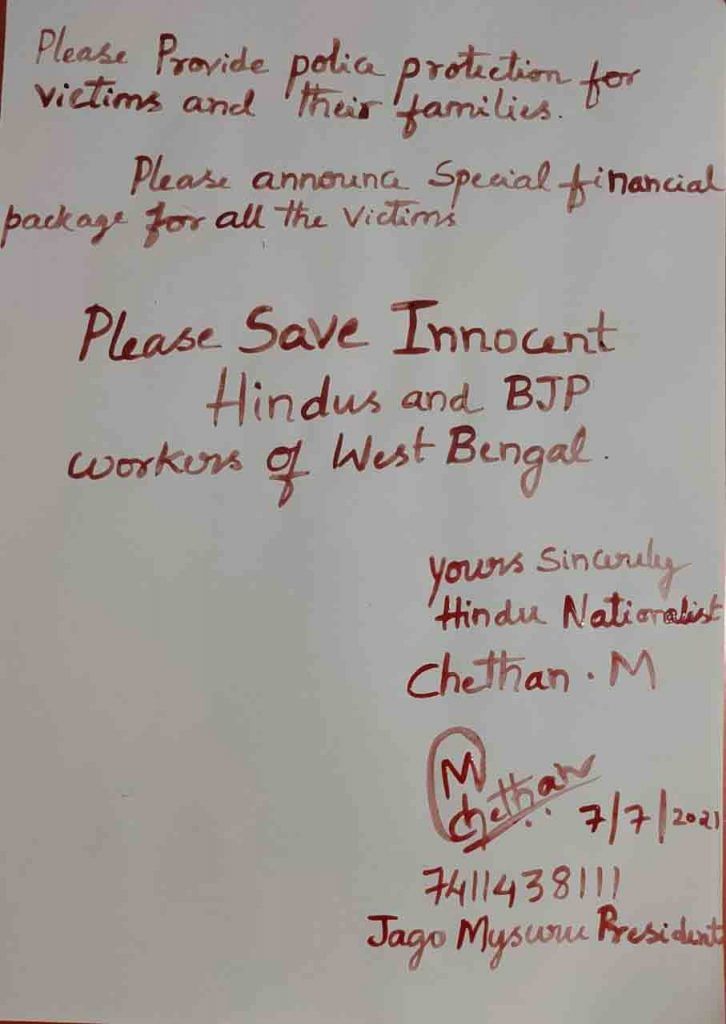 Please Provide police protection for
victims and their families.
Please announce Special financial
package for all the victims
Please Save Innocent
Hindus and BJP
workers of West Bengal.
yours Sincerely
Hindu Nationalist
Chethan . M
M
Chethan
7/7/2021
7411438111
Jago Mysuru President